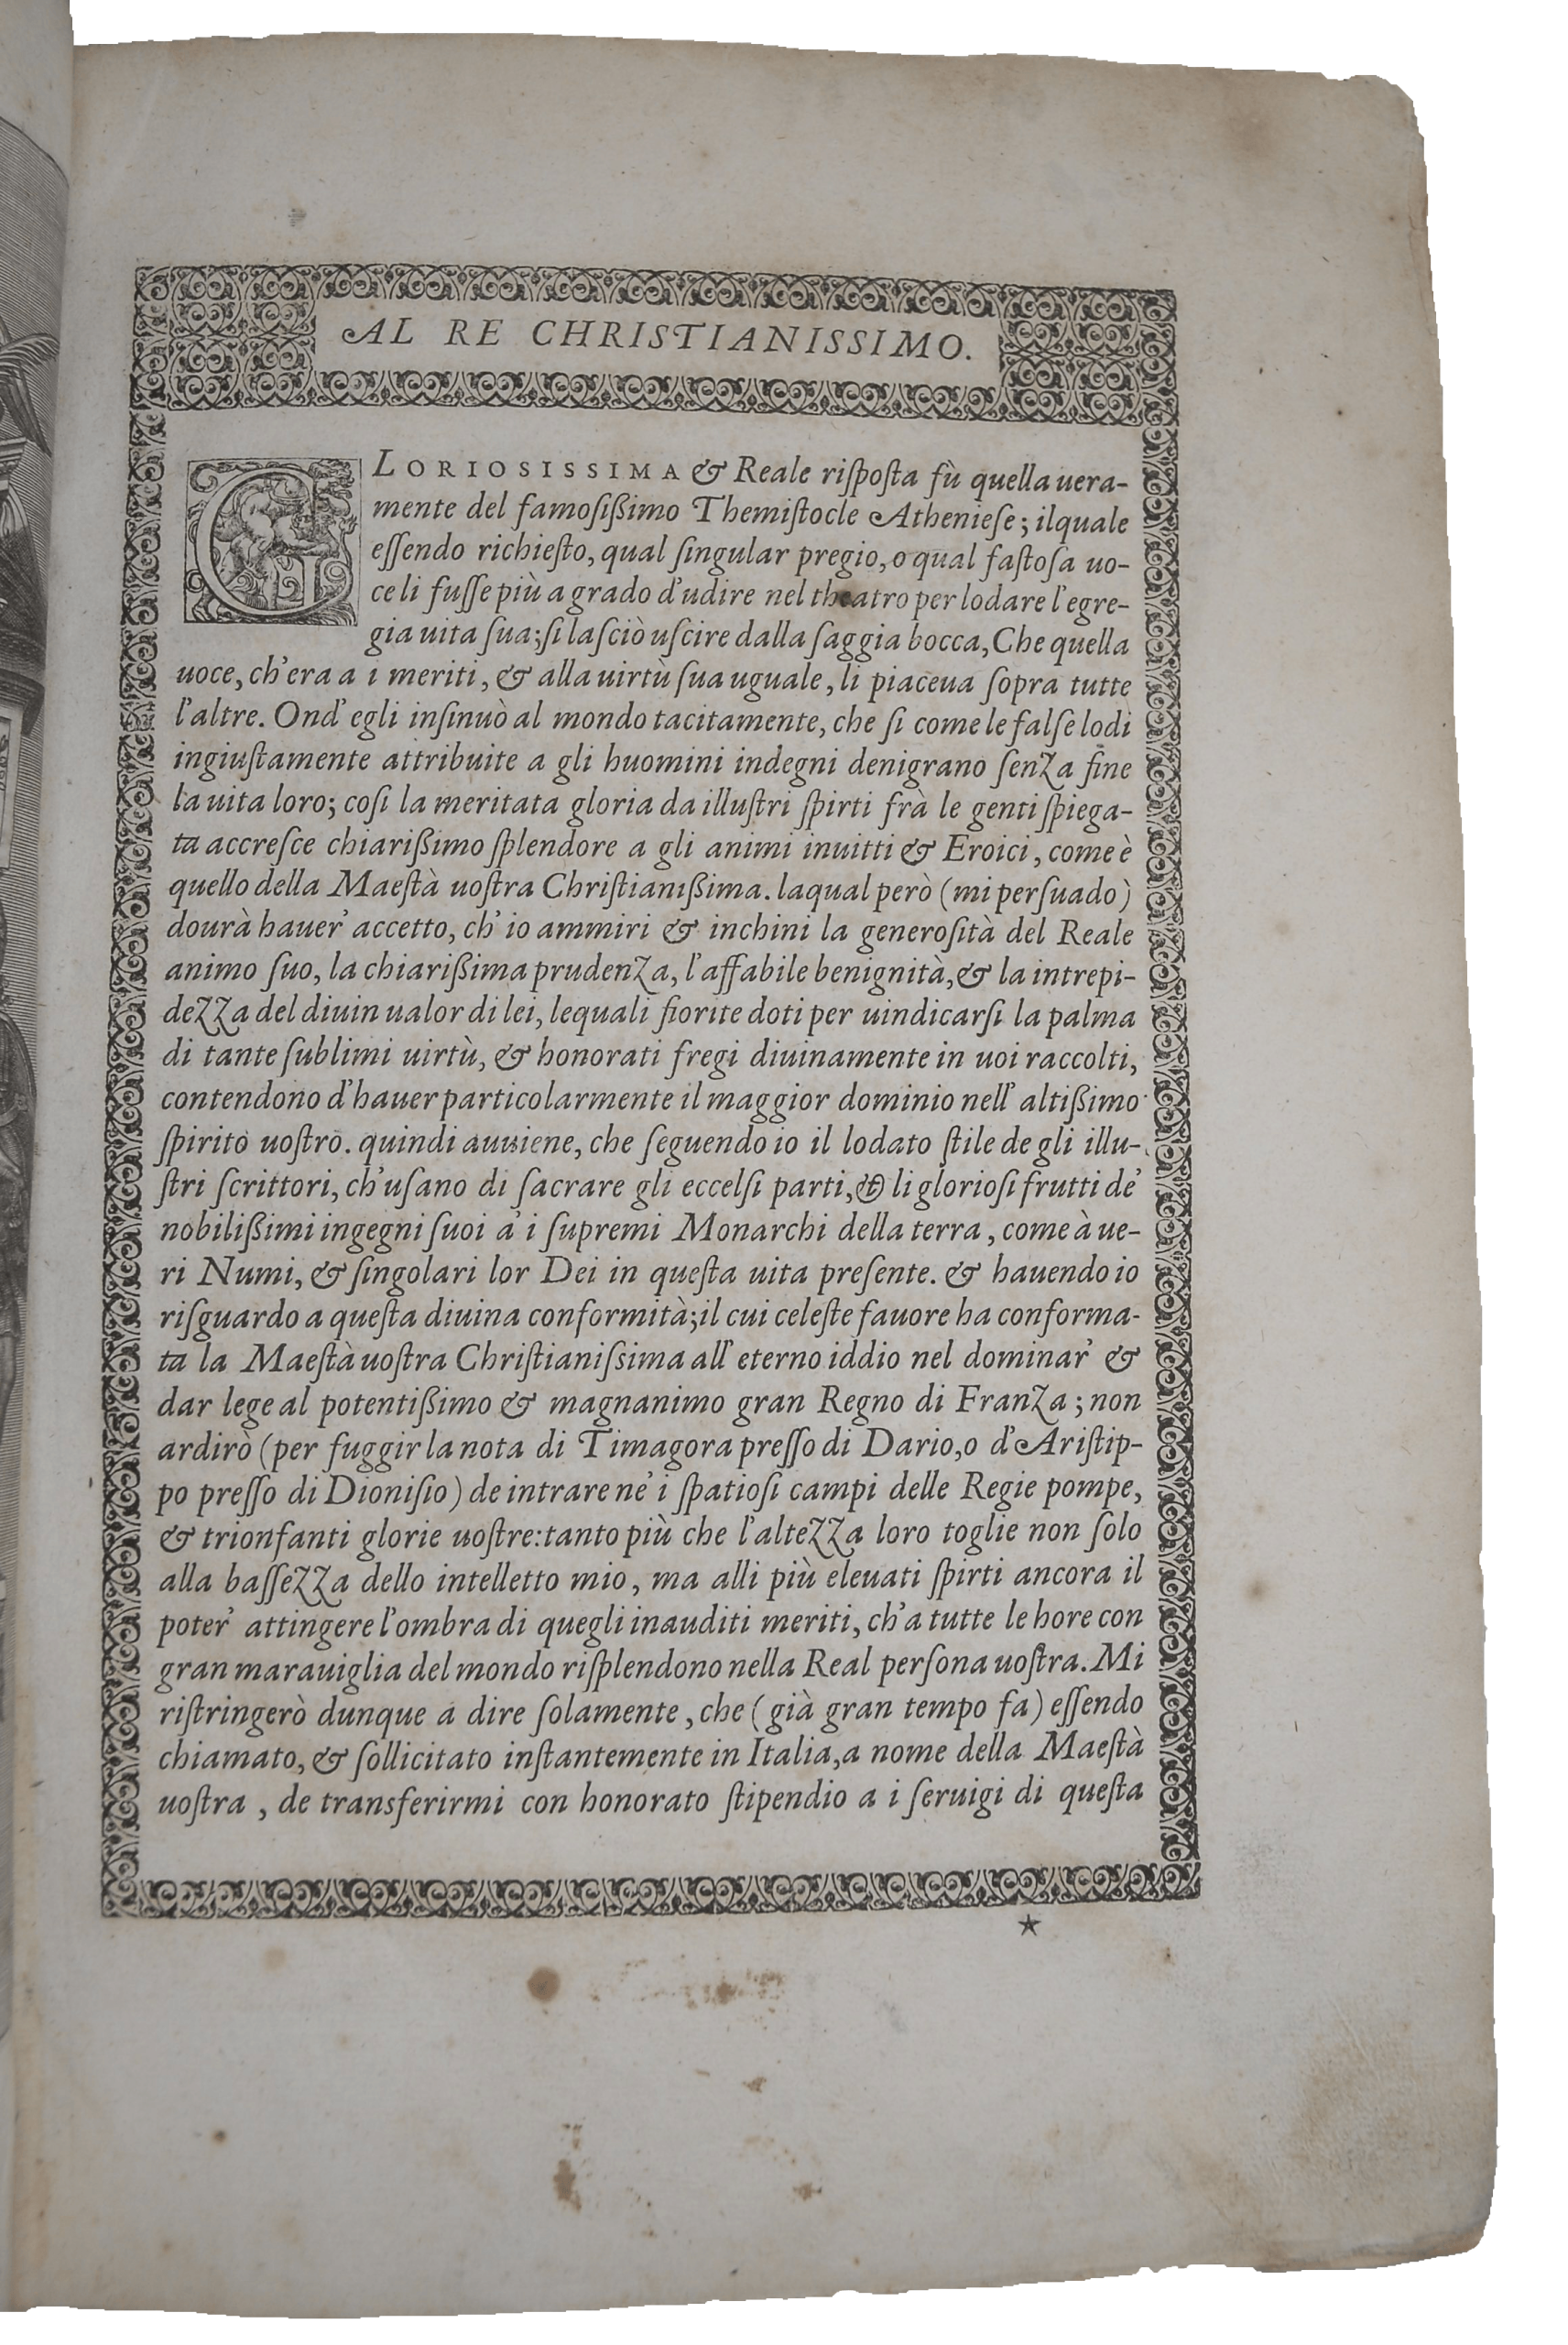 AL RE CHRISTIANISSIMO.
GLORIOSISSIMA & Reale risposta fù quella uera-
mente del famosissimo Themistocle Atheniese; ilquale
essendo richiesto, qual singular pregio, o qual fastosa uo-
ce li fusse più a grado d'udire nel theatro per lodare l'egre-
gia uita sua; si lasciò uscire dalla saggia bocca, Che quella
uoce, ch'era a i meriti, & alla uirtù sua uguale, li piaceua sopra tutte
l'altre. Ond' egli insinuò al mondo tacitamente, che si come le false lodi
ingiustamente attribuite a gli huomini indegni denigrano senza fine
la uita loro; cosi la meritata gloria da illustri spirti frà le genti spiega-
ta accresce chiarissimo splendore a gli animi inuitti & Eroici, come è
quello della Maestà uostra Christianissima. laqual però (mi persuado)
dourà hauer' accetto, ch' io ammiri & inchini la generosità del Reale
animo suo, la chiarissima prudenza, l'affabile benignità, & la intrepi-
dezza del diuin ualor di lei, lequali fiorite doti per uindicarsi la palma
di tante sublimi uirtù, & honorati fregi diuinamente in uoi raccolti,
contendono d'hauer particolarmente il maggior dominio nell' altissimo
spirito uostro. quindi auuiene, che seguendo io il lodato stile de gli illu-
stri scrittori, ch'usano di sacrare gli eccelsi parti, & li gloriosi frutti de'
nobilissimi ingegni suoi a' i supremi Monarchi della terra, come à ue-
ri Numi, & singolari lor Dei in questa uita presente. & hauendo io
risguardo a questa diuina conformità; il cui celeste fauore ha conforma-
ta la Maestà uostra Christianissima all' eterno iddio nel dominar' &
dar lege al potentissimo & magnanimo gran Regno di Franza; non
ardirò (per fuggir la nota di Timagora presso di Dario, o d'Aristip-
po presso di Dionisio) de intrare ne' i spatiosi campi delle Regie pompe,
& trionfanti glorie uostre: tanto più che l'altezza loro toglie non solo
alla bassezza dello intelletto mio, ma alli più eleuati spirti ancora il
poter' attingere l'ombra di quegli inauditi meriti, ch'a tutte le hore con
gran marauiglia del mondo risplendono nella Real persona uostra. Mi
ristringerò dunque a dire solamente, che (già gran tempo fa) essendo
chiamato, & sollicitato instantemente in Italia, a nome della Maestà
uostra, de transferirmi con honorato stipendio a i seruigi di questa
★